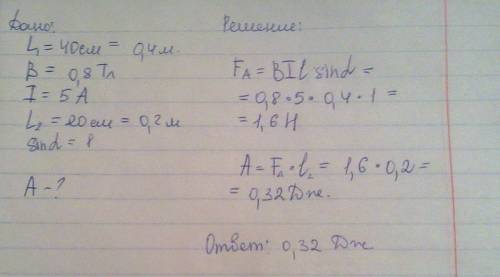 Дано:
L₁ = 40см = 0,4м.
B = 0,8 Тл
I = 5 A
L₂ = 20см = 0,2м
sind = 1
A - ?
Решение:
F_A = BIl sind =
= 0,8 • 5 • 0,4 • 1 =
= 1,6 Н
A = F_A • l₂ = 1,6 • 0,2 =
= 0,32 Дж.
Ответ: 0,32 Дж